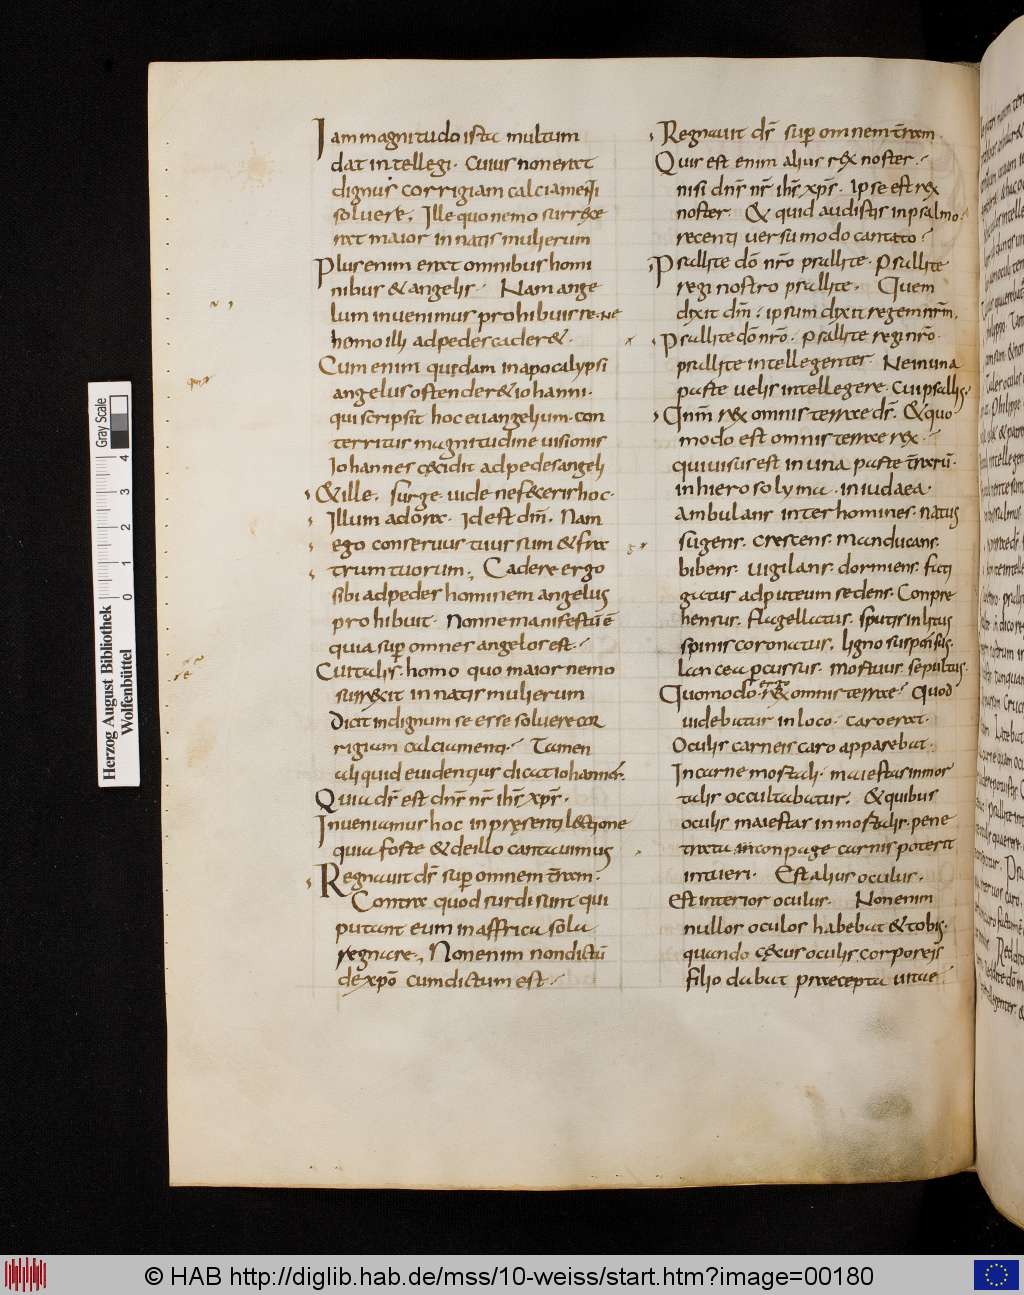 Iam magnitudo ista multum
dat intellegi. Cuius non erat
dignus corrigiam calciamenti
solvere. Ille quo nemo surrexe
rat maior in natis mulierum
Plus enim erat omnibus homi
nibus & angelis. Nam ange
lum invenimus prohibuisse. ne
homo illi ad pedes cader&.
Cum enim quędam in apocalypsi
angelus ostender& iohanni.
qui scripsit hoc euangelium. con
territus magnitudine visionis
Iohannes cęcidit ad pedes angeli
& ille. surge. vide ne feceris hoc.
Illum adora. Id est dm̄. Nam
ego conservus tuus sum & fra
trum tuorum. Cadere ergo
sibi ad pedes hominem angelus
prohibuit. Nonne manifestū ē
quia sup̄ omnes angelos est.
Cui talis. homo quo maior nemo
surrexit in natis mulierum
Dicit indignum se esse solvere cor
rigiam calciamenti. Tamen
aliquid evidentius dicat iohannes.
Quia ds̄ est dn̄s nr̄ ihs̄ xp̄s.
Inveniamus hoc in pręsenti lectione
quia forte & de illo cantavimus
Regnavit ds̄ sup̄ omnem t̄ram.
Contra quod surdi sunt qui
putant eum in affrica sola
regnare. Non enim non dictū
de xp̄o cum dictum est.
Regnavit ds̄ sup̄ omnem t̄ram.
Quis est enim alius rex noster.
nisi dn̄s nr̄ ihs̄ xp̄s. ipse est rex
noster. & quid audistis in psalmo.
recenti versu modo cantato.
Psallite dō nr̄o psallite. Psallite
regi nostro psallite. Quem
dixit dm̄. ipsum dixit regem nr̄m.
Psallite dō nr̄o. psallite regi nr̄o.
psallite intellegenter. Ne in una
parte velis intellegere. cui psallis.
Qnm̄ rex omnis terrae ds̄. & quo
modo est omnis terrae rex.
qui visus est in una parte t̄rarū.
in hierosolyma. in iudaea.
ambulans inter homines. natus
sugens. crescens. manducans.
bibens. vigilans. dormiens. fati
gatus ad puteum sedens. Conpre
hensus. flagellatus. sputis inlitus
spinis coronatus. ligno suspensus.
lancea p̄cussus. mortuus. sepultus.
Quomodo. rex omnis terrae. Quod
videbatur in loco. caro erat.
Oculis carneis caro apparebat.
In carne mortali. maiestas inmor
talis occultabatur. & quibus
oculis maiestas inmortalis. pene
trata in conpage carnis poterit
intueri. Est alius oculus.
Est interior oculus. Non enim
nullos oculos habebat & tobis.
quando cęcus oculis corporeis
filio dabat praecepta vitae.
Herzog August Bibliothek
Wolfenbüttel
Gray Scale
0 1 2 3 4
© HAB http://diglib.hab.de/mss/10-weiss/start.htm?image=00180